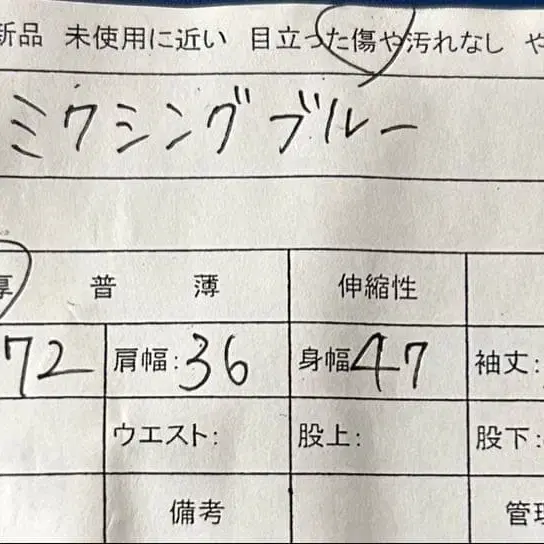 新品 未使用に近い 目立った傷や汚れなし や
ミクシングブルー
厚 普 薄 伸縮性
72 肩幅:36 身幅47 袖丈:
ウエスト: 股上: 股下:
備考 管理